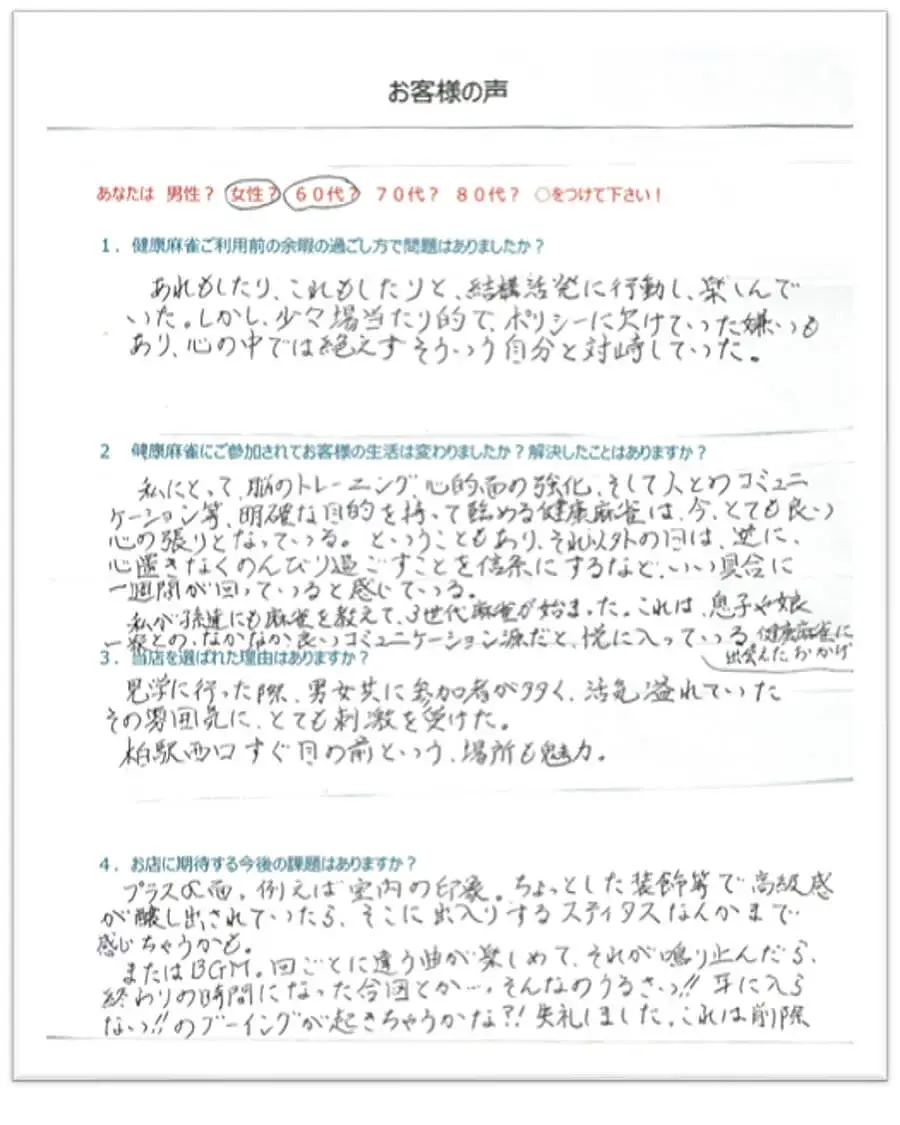 お客様の声
あなたは 男性？ 女性？ ６０代？ ７０代？ ８０代？ ○をつけて下さい！
１．健康麻雀ご利用前の余暇の過ごし方で問題はありましたか？
あれもしたり、これもしたりと、結構活発に行動し、楽しんで
いた。しかし、少々場当たり的で、ポリシーに欠けていった嫌いも
あり、心の中では絶えずそういう自分と対峙していった。
２ 健康麻雀にご参加されてお客様の生活は変わりましたか？解決したことはありますか？
私にとって、脳のトレーニング、心的面の強化、そして人とのコミュニ
ケーション等、明確な目的を持って臨める健康麻雀は、今、とても良い
心の張りとなっている。ということもあり、それ以外の日は、逆に、
心置きなくのんびり過ごすことを信条にするなど、いい具合に
一週間が回っていると感じている。
私が孫達にも麻雀を教えて、3世代麻雀が始まった。これは、息子や娘
一家との、なかなか良いコミュニケーション源だと、悦に入っている。健康麻雀に
出会えたおかげ
３．当店を選ばれた理由はありますか？
見学に行った際、男女共に参加者が多く、活気溢れていた
その雰囲気に、とても刺激を受けた。
柏駅西口すぐ目の前という、場所も魅力。
４．お店に期待する今後の課題はありますか？
プラスα面。例えば室内の印象。ちょっとした装飾等で高級感
が醸し出されていったら、そこに出入りするスティタスなんかまで
感じちゃうかも。
またはBGM。回ごとに違う曲が楽しめて、それが鳴り止んだら、
終わりの時間になった合図とか…。そんなのうるさいっ!! 耳に入ら
ないっ!! のブーイングが起きちゃうかな?! 失礼しました。これは削除